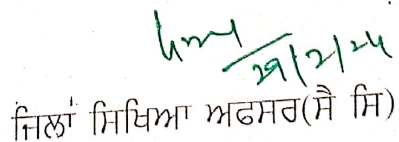 29/2/24
ਜਿਲਾਂ ਸਿਖਿਆ ਅਫਸਰ(ਸੈ ਸਿ)